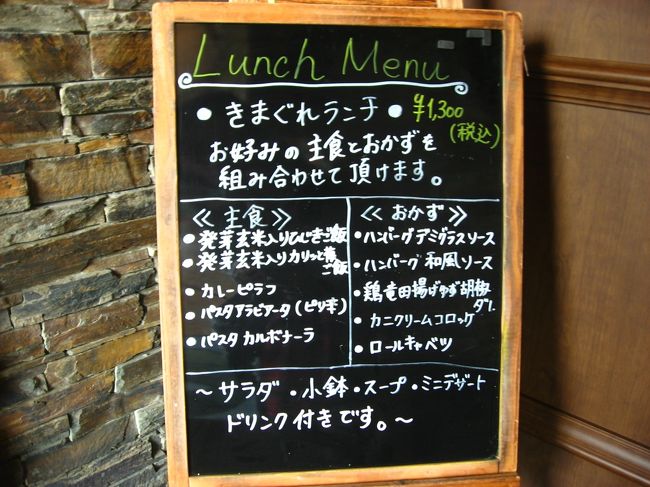 Lunch Menu
• きまぐれランチ • ¥1,300
(税込)
お好みの主食とおかずを
組み合わせて頂けます。
≪主食≫
• 発芽玄米入りひじきご飯
• 発芽玄米入りカリッと梅
ご飯
• カレーピラフ
• パスタアラビアータ(ピリ辛)
• パスタ カルボナーラ
≪おかず≫
• ハンバーグ デミグラスソース
• ハンバーグ 和風ソース
• 鶏竜田揚げゆず胡椒
ダレ
• カニクリームコロッケ
• ロールキャベツ
〜サラダ・小鉢・スープ・ミニデザート
ドリンク付きです。〜